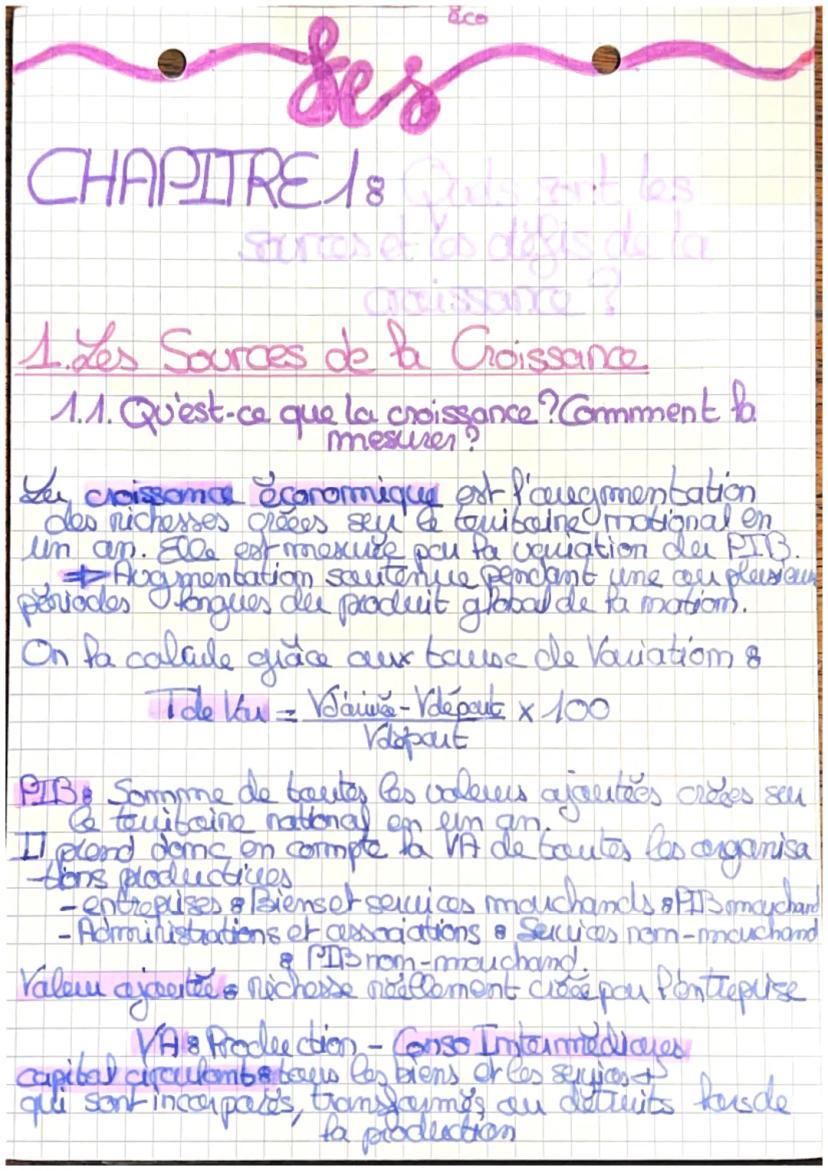 éco
Ses
CHAPITRE 1 : Quels sont les
sources et les défis de la
croissance ?
1. Les Sources de la Croissance
1.1. Qu'est-ce que la croissance ? Commment la
mesurer ?
La croissance économique est l'augmentation
des richesses créées sur le territoire national en
un an. Elle est mesurée par la variation du PIB.
⇒ Augmentation soutenue pendant une ou plusieurs
périodes longues du produit global de la nation.
On la calcule grâce aux taux de Variation :
T de Var = Vd'arrivée - Vdéparte × 100
Vdépart
PIB : Somme de toutes les valeurs ajoutées créées sur
le territoire national en un an.
Il prend donc en compte la VA de toutes les organisa
-tions productives
- entreprises : Biens et services marchands : PIB marchand
- Administrations et associations : Services non-marchand
: PIB non-marchand.
Valeur ajoutée : richesse réellement créée par l'entreprise
VA : Production - Conso Intermédiaires
capital circulant : tous les biens et les services +
qui sont incorporés, transformés, ou détruits lors de
la production